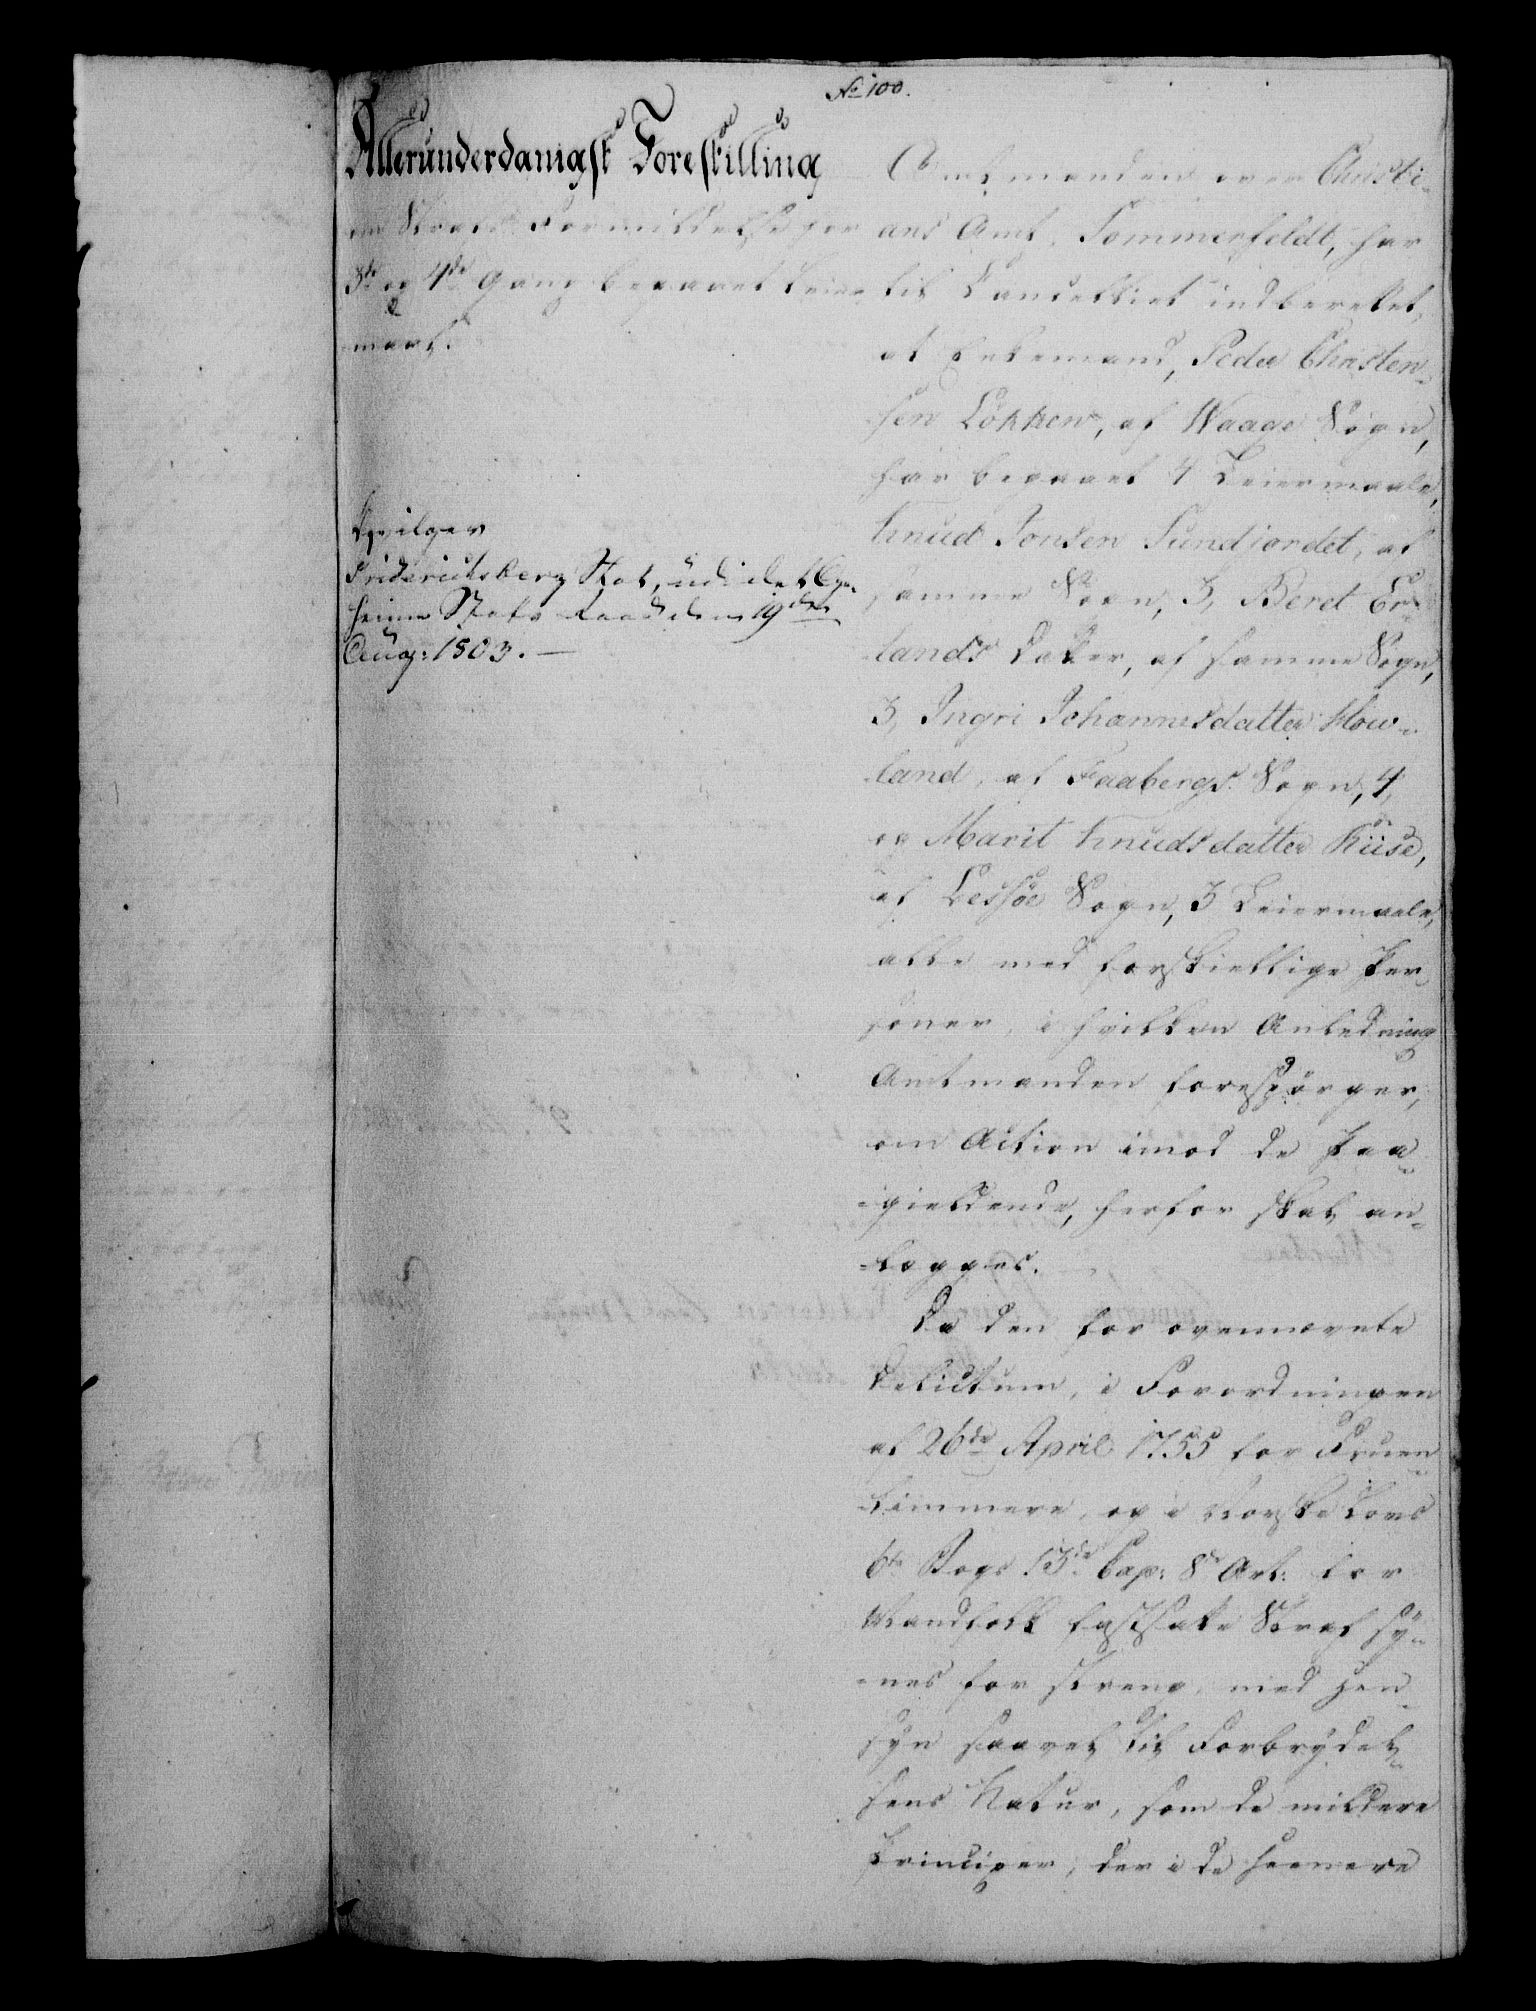 No 100.
Allerunderdanigst Forestilling
om Straf Formildelse for
3de og 4de Gang begaaet Leier-
maal.
Bevilges
Friderichsberg Slot, udi det Ge-
heime Stats Raad den 19den
Aug: 1803. —
Amtmanden over Christi-
ans Amt, Sommerfeldt, har
til Cancelliet indberettet,
at Enkemand, Peder Christen-
sen Løkken, af Waage Sogn,
har begaaet 4 Leiermaale,
Knud Jonsen Sundjordet, af
samme Sogn, 3, Beret Er-
lands Datter, af samme Sogn,
3, Ingri Johannesdatter How-
land, af Faabergs Sogn, 4,
og Marit Knudsdatter Kiise,
af Lessøe Sogn, 3 Leiermaale,
alle med forskiellige Per-
soner, i hvilken Anledning
Amtmanden forespørger,
om Action imod de Paa-
gieldende, herfor skal an-
lægges.
Da den for ovennævnte
Delictum, i Forordningen
af 26de April 1755 for Fruen-
timmere, og i Norske Lovs
6te Bogs 13de Cap: 8de Art: for
Mandfolk fastsatte Straf sy-
nes for streng, med Hen-
syn saavel til Forbrydel-
sens Natur, som de mildere
Principer, der i de seenere